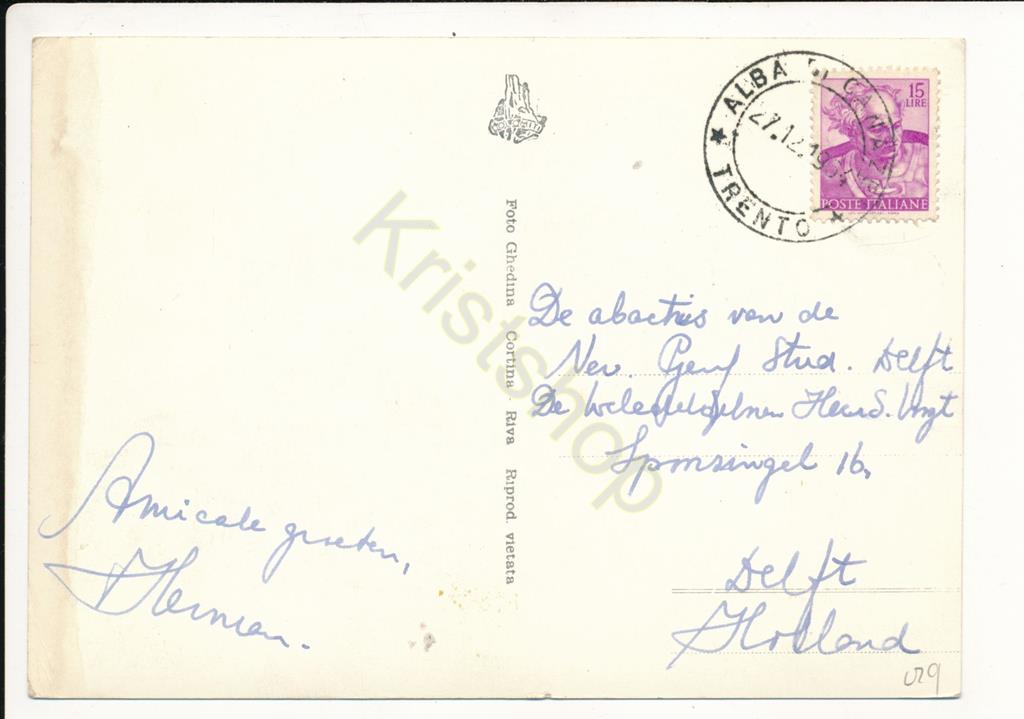 ALBA DI CANAZEI
27.12.19
TRENTO
15
LIRE
POSTE ITALIANE
Foto Ghedina Cortina - Riva Riprod. vietata
Kristshop
De abactis van de
Ver. Stud. Delft
De Heer S. Vogt
Spoorsingel 16,
Delft
Holland
Amicale groeten,
Herman.